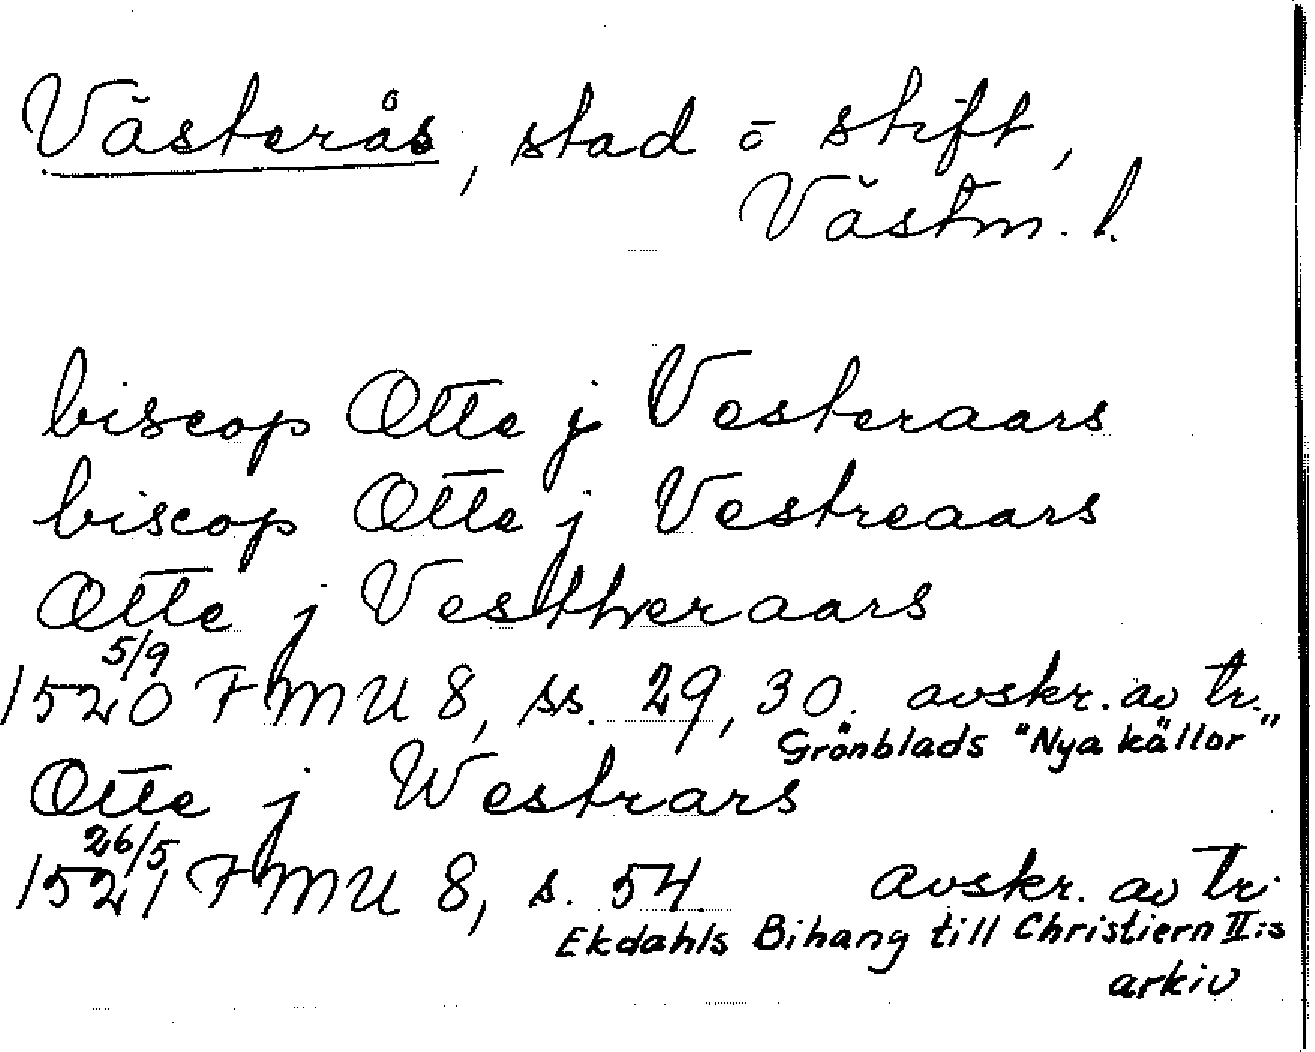 Västerås, stad ō stift,
Västm. l.
biscop Otte j Vesteraars
biscop Otte j Vestreaars
Otte j Vestheraars
5/9
1520 FMU 8, ss. 29, 30. avskr. av tr.
Grönblads "Nya källor"
Otte j Westrars
26/5
1521 FMU 8, s. 54. avskr. av tr.
Ekdahls Bihang till Christiern II:s
arkiv